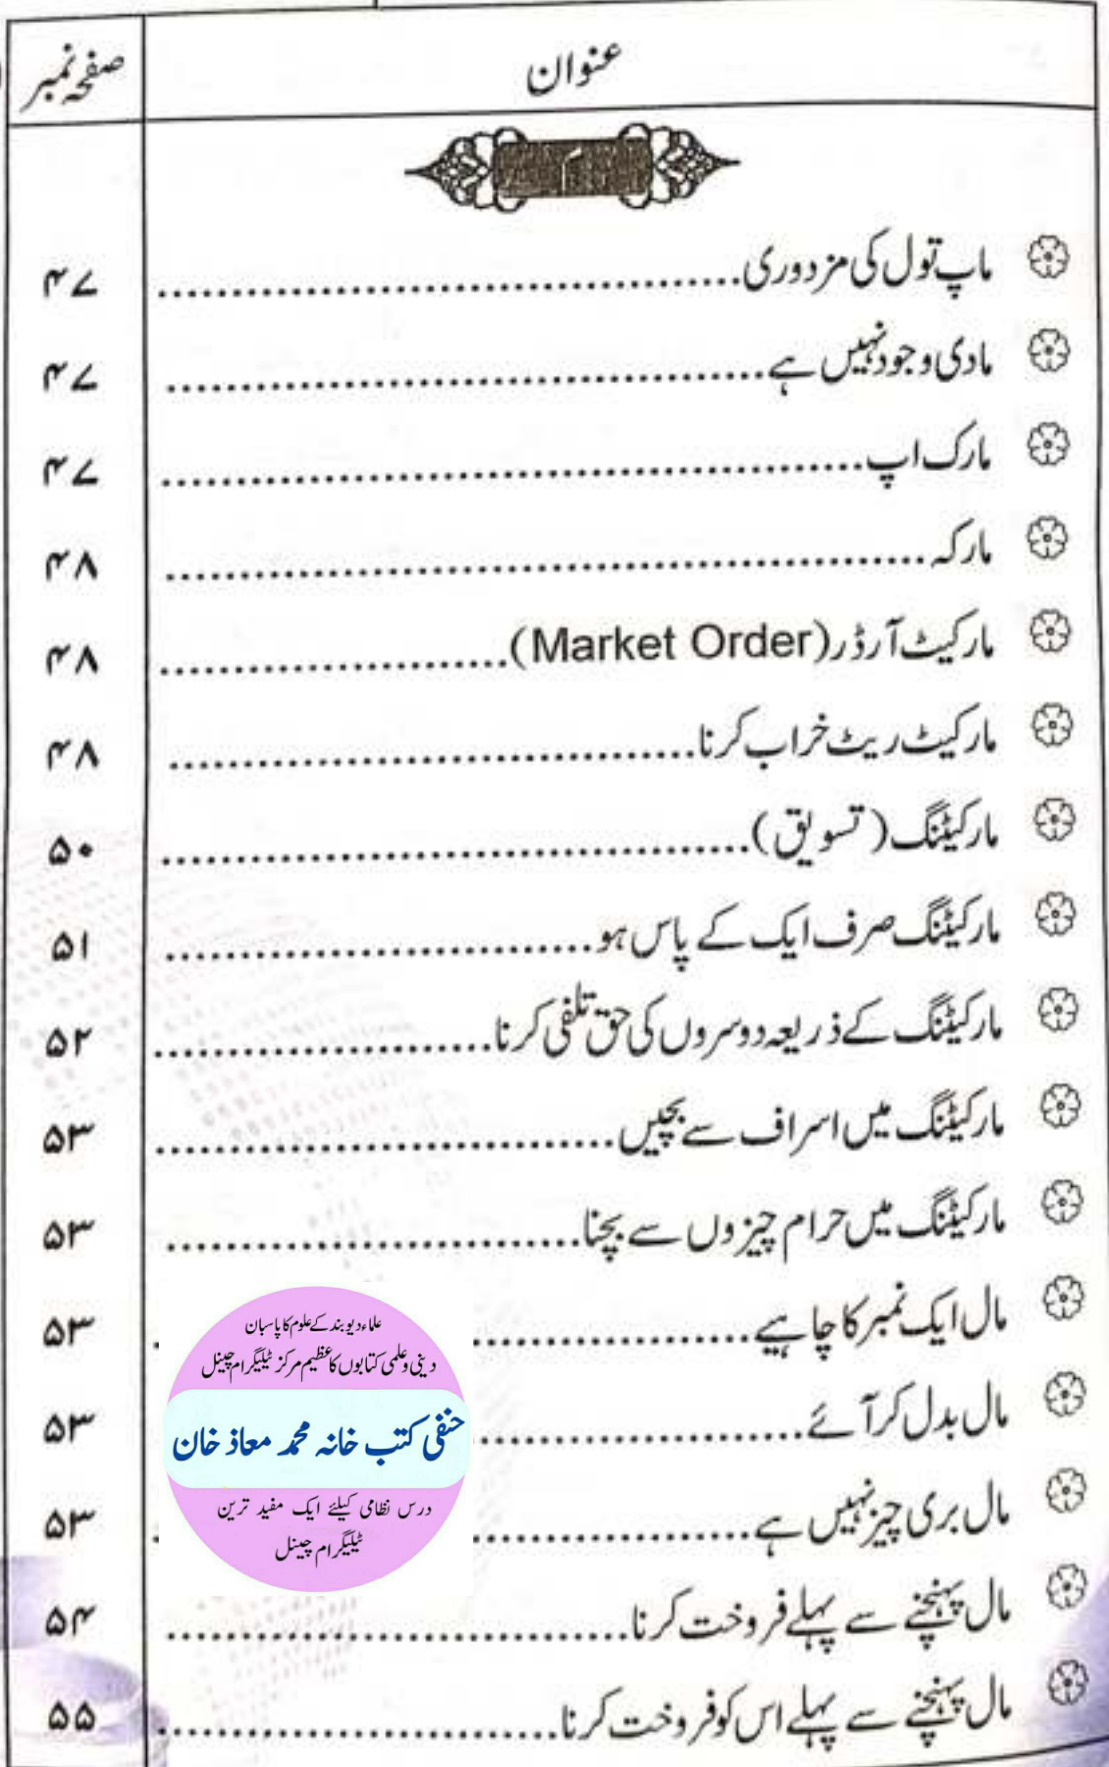 عنوان صفحہ نمبر
م
ماپ تول کی مزدوری ۴۷
مادی وجود نہیں ہے ۴۷
مارک اپ ۴۷
مارکہ ۴۸
مارکیٹ آرڈر (Market Order) ۴۸
مارکیٹ ریٹ خراب کرنا ۴۸
مارکیٹنگ (تسویق) ۵۰
مارکیٹنگ صرف ایک کے پاس ہو ۵۱
مارکیٹنگ کے ذریعہ دوسروں کی حق تلفی کرنا ۵۲
مارکیٹنگ میں اسراف سے بچیں ۵۳
مارکیٹنگ میں حرام چیزوں سے بچنا ۵۳
مال ایک نمبر کا چاہیے ۵۳
مال بدل کر آئے ۵۳
مال بری چیز نہیں ہے ۵۳
مال پہنچنے سے پہلے فروخت کرنا ۵۴
مال پہنچنے سے پہلے اس کو فروخت کرنا ۵۵
علماء دیوبند کے علوم کا پاسبان
دینی و علمی کتابوں کا عظیم مرکز ٹیلیگرام چینل
حنفی کتب خانہ محمد معاذ خان
درس نظامی کیلئے ایک مفید ترین
ٹیلیگرام چینل